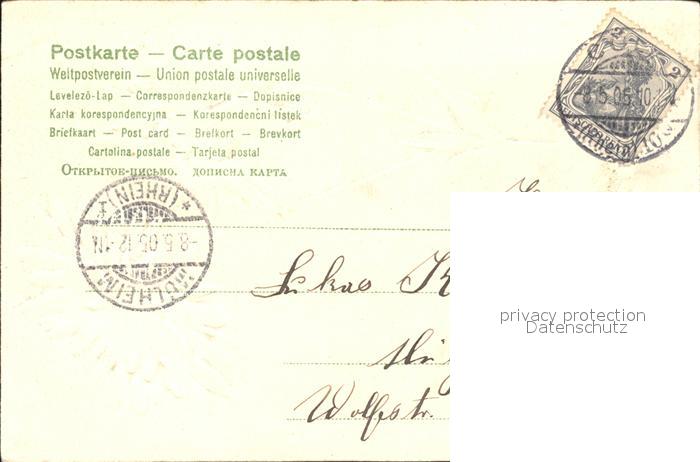 Postkarte — Carte postale
Weltpostverein — Union postale universelle
Levelező-Lap — Correspondenzkarte — Dopisnice
Karta korespondencyjna — Korespondenční lístek
Briefkaart — Post card — Brefkort — Brevkort
Cartolina postale — Tarjeta postal
Открытое-письмо. дописна карта
2 2
8.5.05.10
MÜLHEIM (RHEIN)
-8.5.05.12-1N.
Lukas K
Wolfstr.
privacy protection
Datenschutz